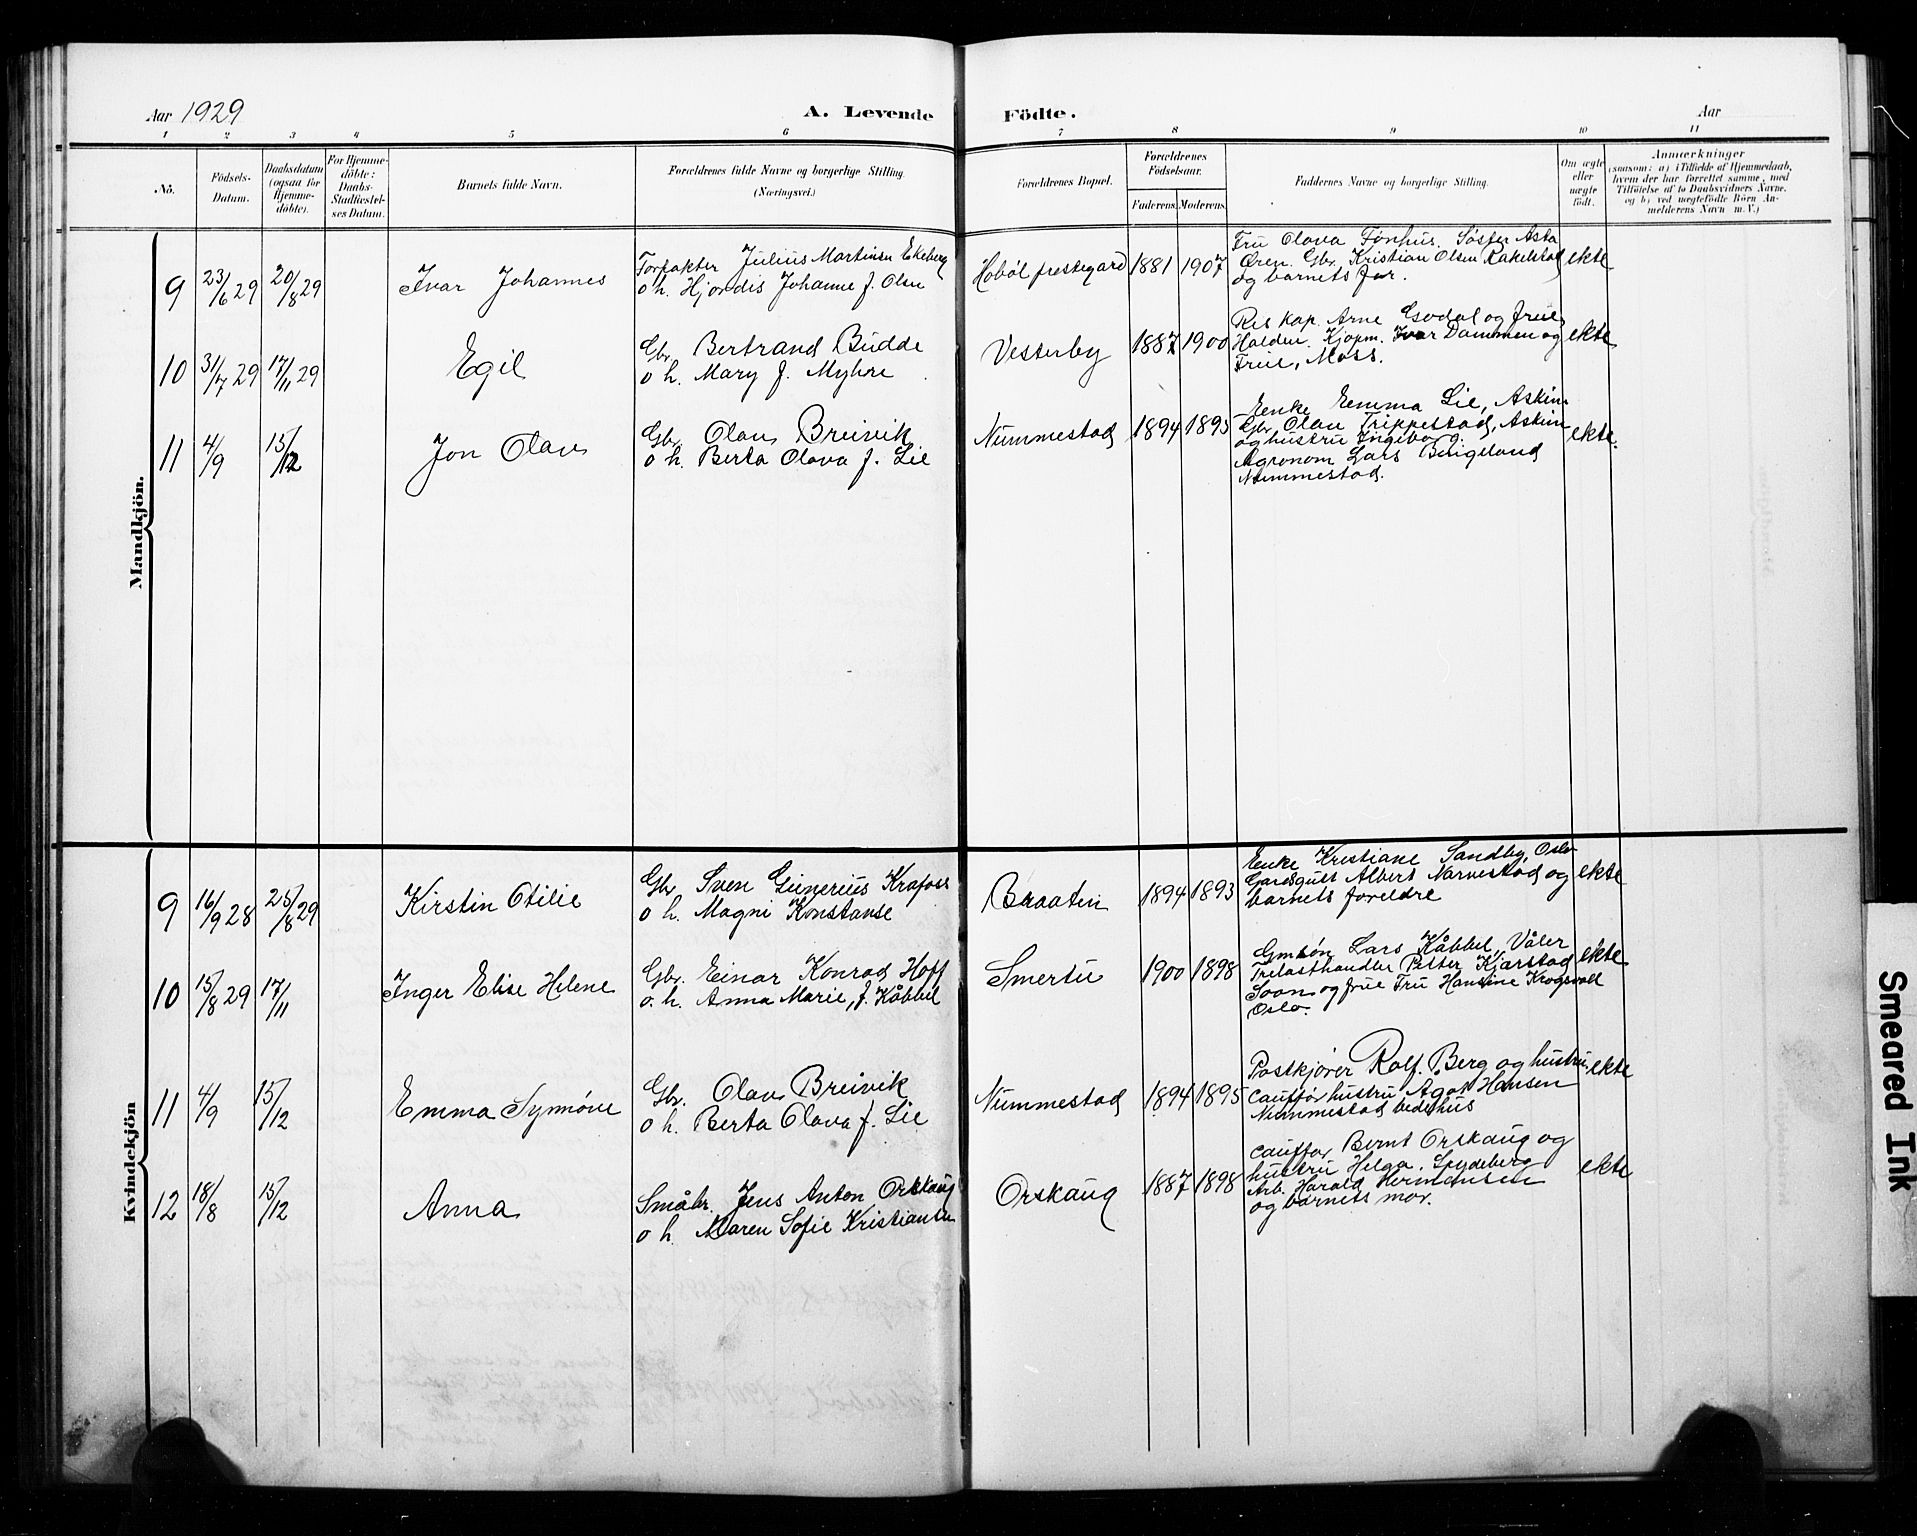 Aar 1929
A. Levende Födte.
Aar
1 2 3 4 5 6 7 8 9 10 11
Nö.
Födsels-
Datum.
Daabsdatum
(ogsaa for
Hjemme-
döbte).
For Hjemme-
döbte:
Daabs-
Stadfæstel-
ses Datum.
Barnets fulde Navn.
Forældrenes fulde Navne og borgerlige Stilling.
(Næringsvei.)
Forældrenes Bopæl.
Forældrenes
Födselsaar.
Faderens. Moderens.
Faddernes Navne og borgerlige Stilling.
Om ægte
eller
uægte
födt.
Anmærkninger
(saasom: a) i Tilfælde af Hjemmedaab,
hvem der har forrettet samme, med
Tilföielse af to Daabsvidners Navne.
og b) ved uægtefödte Börn An-
melderens Navn m. V.)
Mandkjön.
9 23/6 29 20/8 29 Ivar Johannes
Forpakter Julius Martinsen Ekeberg
o h. Hjordis Johanne f. Olsen
Hobøl prestegard 1881 1907
Fru Olava Fønhus. Søster Asta
Ören. Gbr. Kristian Olsen Rakelstad
og barnets far.
ekte
10 31/7 29 17/11 29 Egil
Gbr. Bertrand Budde
o h. Mary f. Myhre
Vesterby 1887 1900
Arne og frue
Halden. Kjøpm. Ivar Dammen og
Frue, Moss.
ekte
11 4/9 15/12 Jon Olav
Gbr. Olav Breivik
o h. Berta Olava f. Lie
Nummestad 1894 1895
Enke Emma Lie, Askim.
Gbr. Olav Trippestad, Askim
og hustru Ingeborg.
Agronom Lars Bingeland
Nummestad.
ekte.
Kvindekjön
9 16/9 28 25/8 29 Kirstin Otilie
Gbr. Sven Gunerius Krafoss
o h. Magni Konstanse
Braaten 1894 1893
Enke Kristiane Sandby, Oslo
Gardsgutt Albert Narvestad og
barnets foreldre
ekte
10 15/8 29 17/11 Inger Elise Helene
Gbr. Einar Konrad Hoff
o. h. Anna Marie, f. Kåbbel
Smertu 1900 1898
Gmsøn Lars Kåbbel, Våler
Trelasthandler Petter Kjærstad
Soon og frue Fru Hansine Krogsvoll
Oslo.
ekte
11 4/9 15/12 Emma Synnøve
Gbr. Olav Breivik
o h. Berta Olava f. Lie
Nummestad 1894 1895
Postkjører Rolf Berg og hustru.
Cauffør hustru Agot Hansen
Nummestad bedehus
ekte
12 18/8 15/12 Anna
Småbr. Jens Anton Orskaug
o h. Maren Sofie Kristiansen
Orskaug 1887 1898
Cauffør Bernt Orskaug og
hustru Helga. Spydeberg
Arb. Harald Hermansen
og barnets mor.
ekte
Smeared Ink